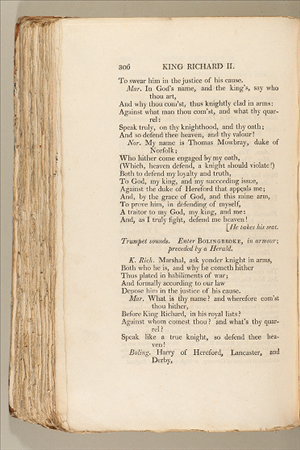 306 KING RICHARD II.
To swear him in the justice of his cause.
Mar. In God's name, and the king's, say who
thou art,
And why thou com'st, thus knightly clad in arms:
Against what man thou com'st, and what thy quar-
rel:
Speak truly, on thy knighthood, and thy oath;
And so defend thee heaven, and thy valour!
Nor. My name is Thomas Mowbray, duke of
Norfolk;
Who hither come engaged by my oath,
(Which, heaven defend, a knight should violate!)
Both to defend my loyalty and truth,
To God, my king, and my succeeding issue,
Against the duke of Hereford that appeals me;
And, by the grace of God, and this mine arm,
To prove him, in defending of myself,
A traitor to my God, my king, and me:
And, as I truly fight, defend me heaven!
[He takes his seat.
Trumpet sounds. Enter BOLINGBROKE, in armour;
preceded by a Herald.
K. Rich. Marshal, ask yonder knight in arms,
Both who he is, and why he cometh hither
Thus plated in habiliments of war;
And formally according to our law
Depose him in the justice of his cause.
Mar. What is thy name? and wherefore com'st
thou hither,
Before King Richard, in his royal lists?
Against whom comest thou? and what's thy quar-
rel?
Speak like a true knight, so defend thee hea-
ven!
Boling. Harry of Hereford, Lancaster, and
Derby,